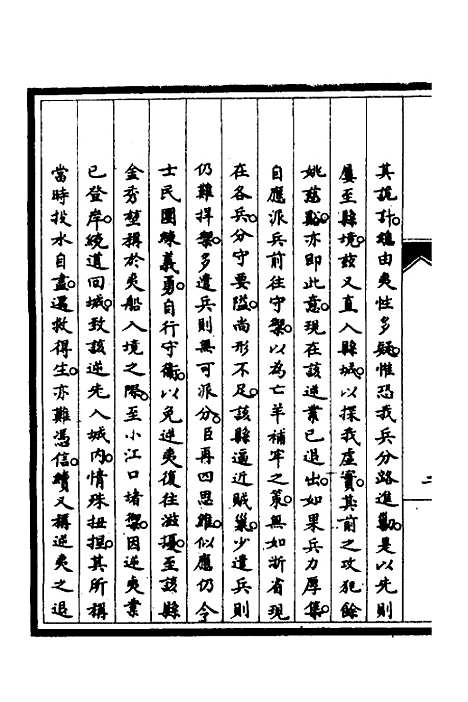 其詭計。雖由夷性多疑。惟恐我兵分路進勦。是以先則
屢至縣境。該又直入縣城。以探我虛實。其前之攻犯餘
姚慈谿。亦即此意。現在該逆業已退出。如果兵力厚集。
自應派兵前往守禦。以為亡羊補牢之策。無如浙省現
在各兵。分守要隘。尚形不足。該縣逼近賊巢。少遣兵則
仍難捍禦。多遣兵則無可派分。臣再四思維。似應仍令
士民團練義勇。自行守衛。以免逆夷復往滋擾。至該縣
金秀堃稱於夷船入境之際。至小江口堵禦。因逆夷業
已登岸。繞道回城。致該逆先入城內。情殊扭捏。其所稱
當時投水自盡。遇救得生。亦難憑信。續又稱逆夷之退
二